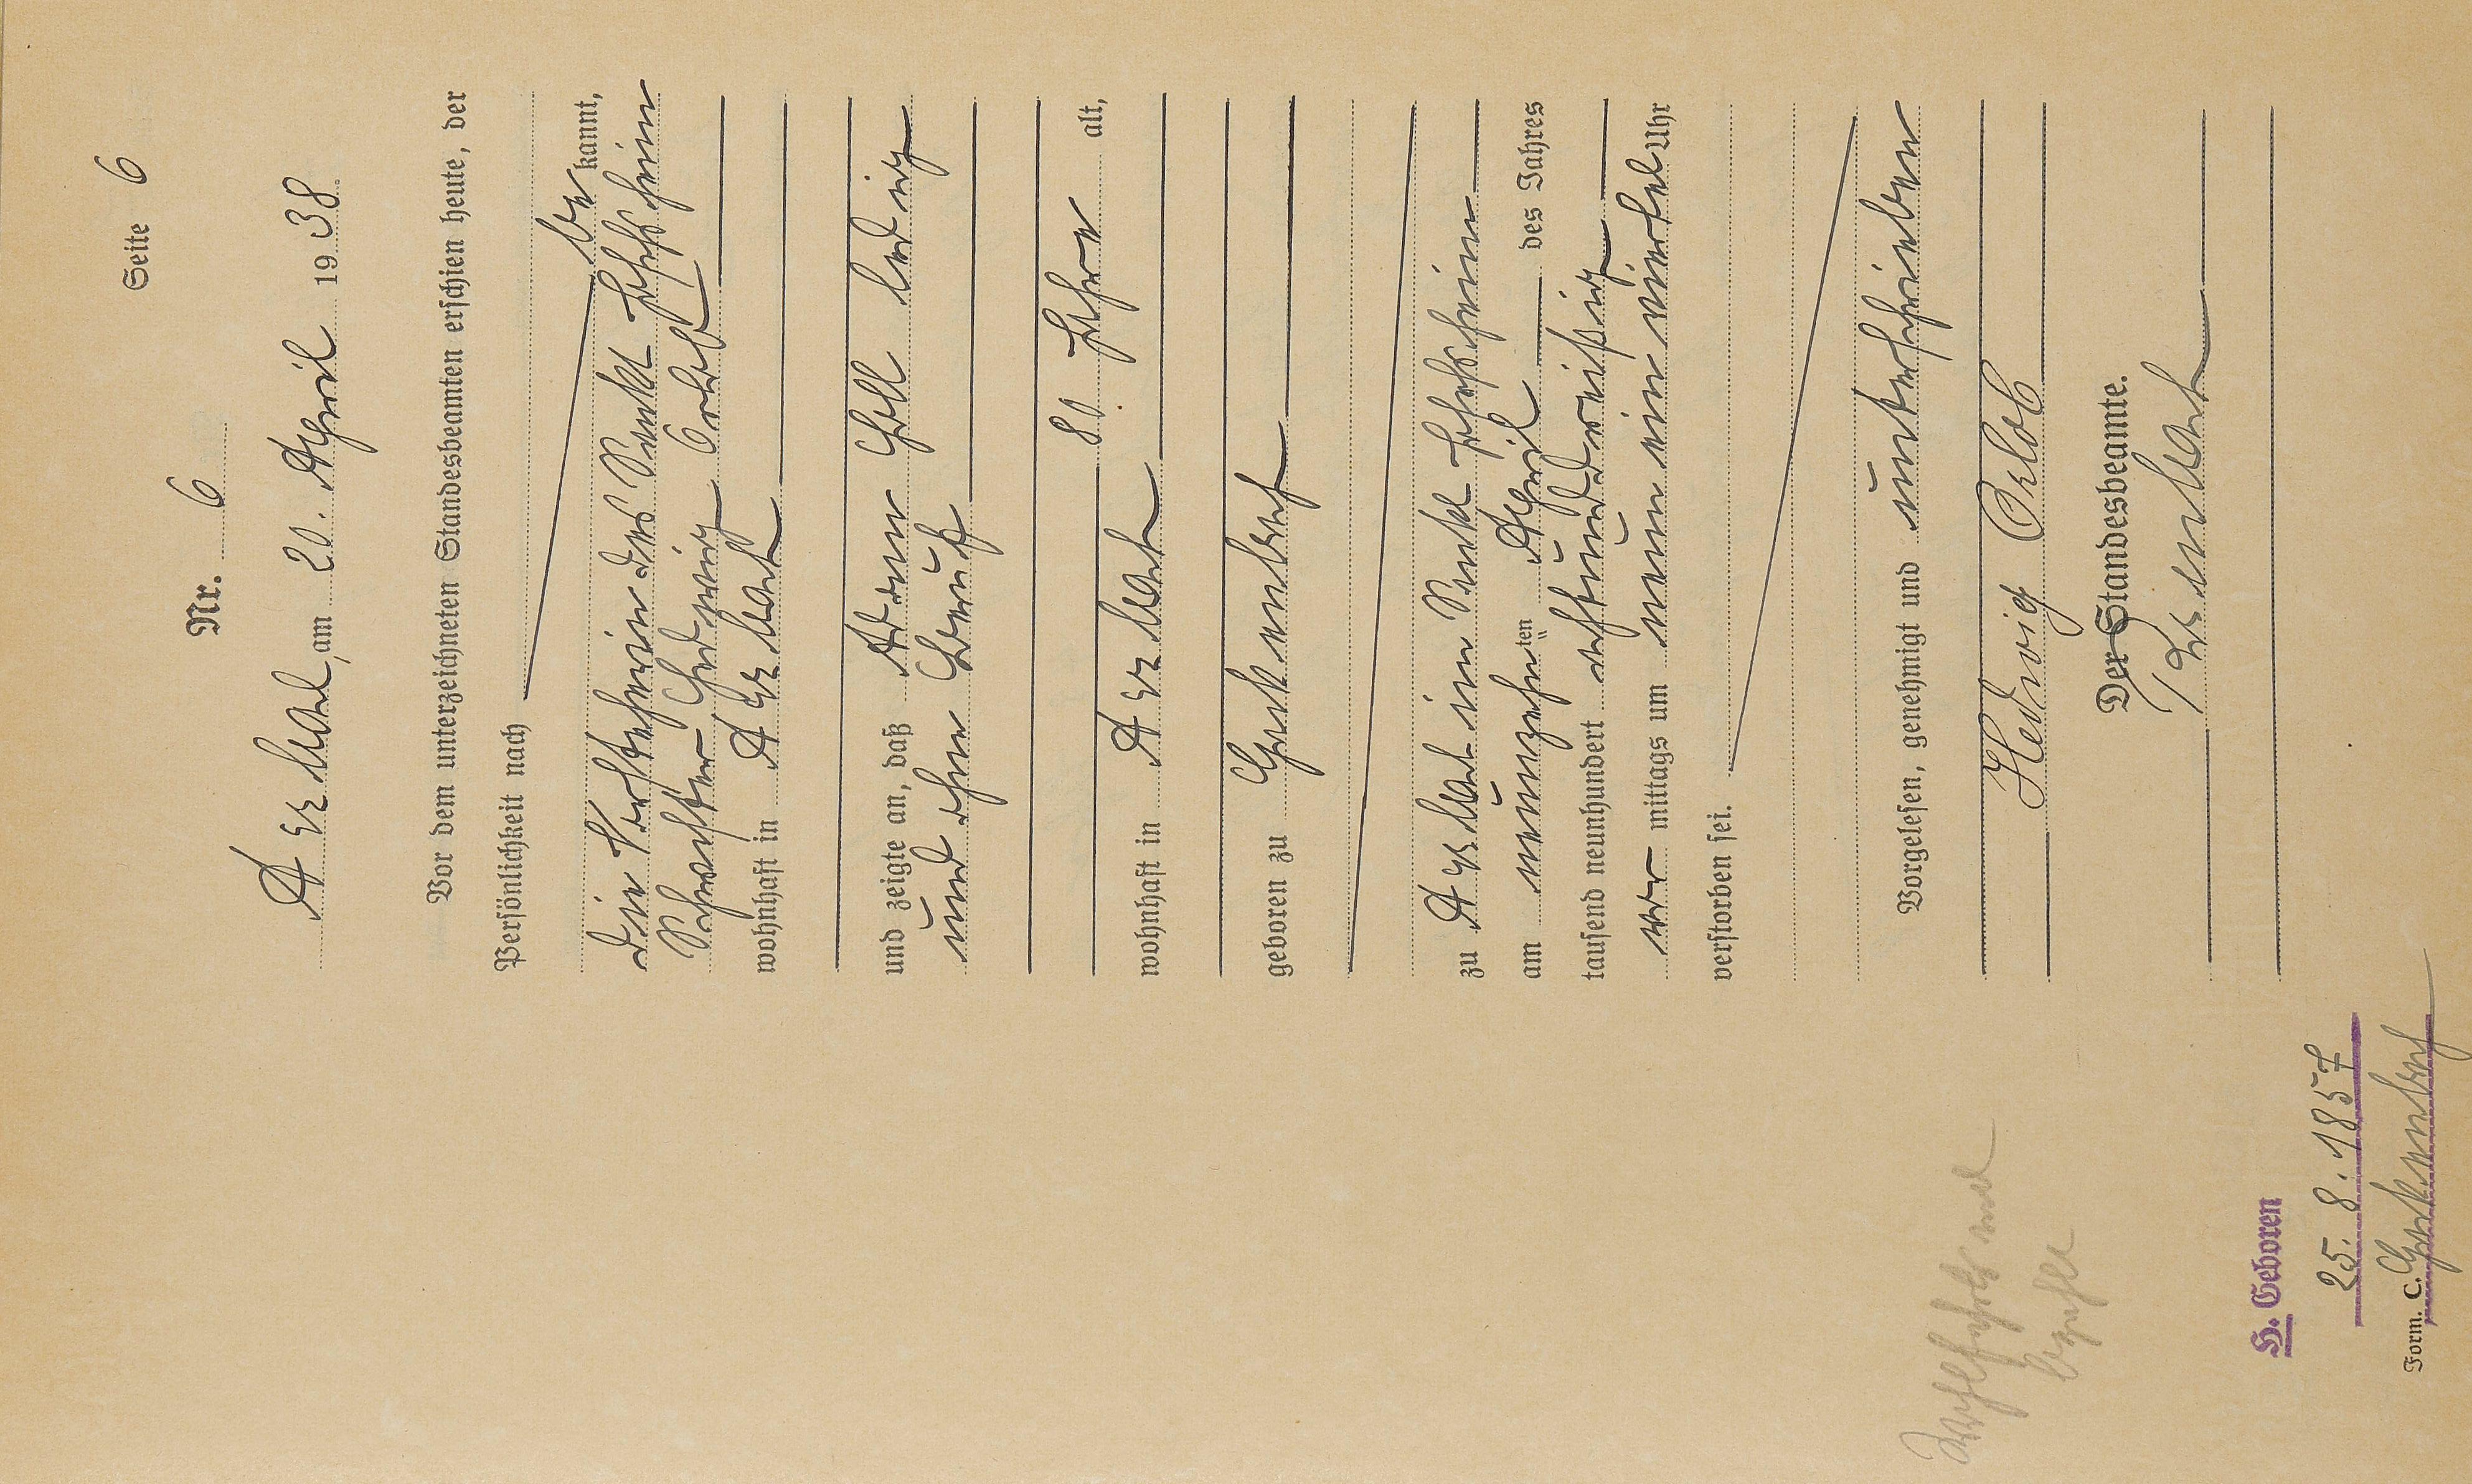 Seite 6
Nr. 6
Arzbach, am 20. April 1938.
Vor dem unterzeichneten Standesbeamten erschien heute, der
Persönlichkeit nach
be kannt,
die Vorsteherin des Sankt Josefsheim
Schwester Hedwig Orlob
wohnhaft in Arzbach
und zeigte an, daß Adam ledig
und ohne Beruf
80 Jahre alt,
wohnhaft in Arzbach
geboren zu Gackenbach
zu Arzbach im Sankt Josefsheim
am neunzehnten April des Jahres
tausend neunhundert achtunddreißig
vor mittags um neun ein viertel Uhr
verstorben sei.
Vorgelesen, genehmigt und unterschrieben
Hedwig Orlob
Der Standesbeamte.
H. Geboren
25. 8. 1857
Gackenbach
Form. C.